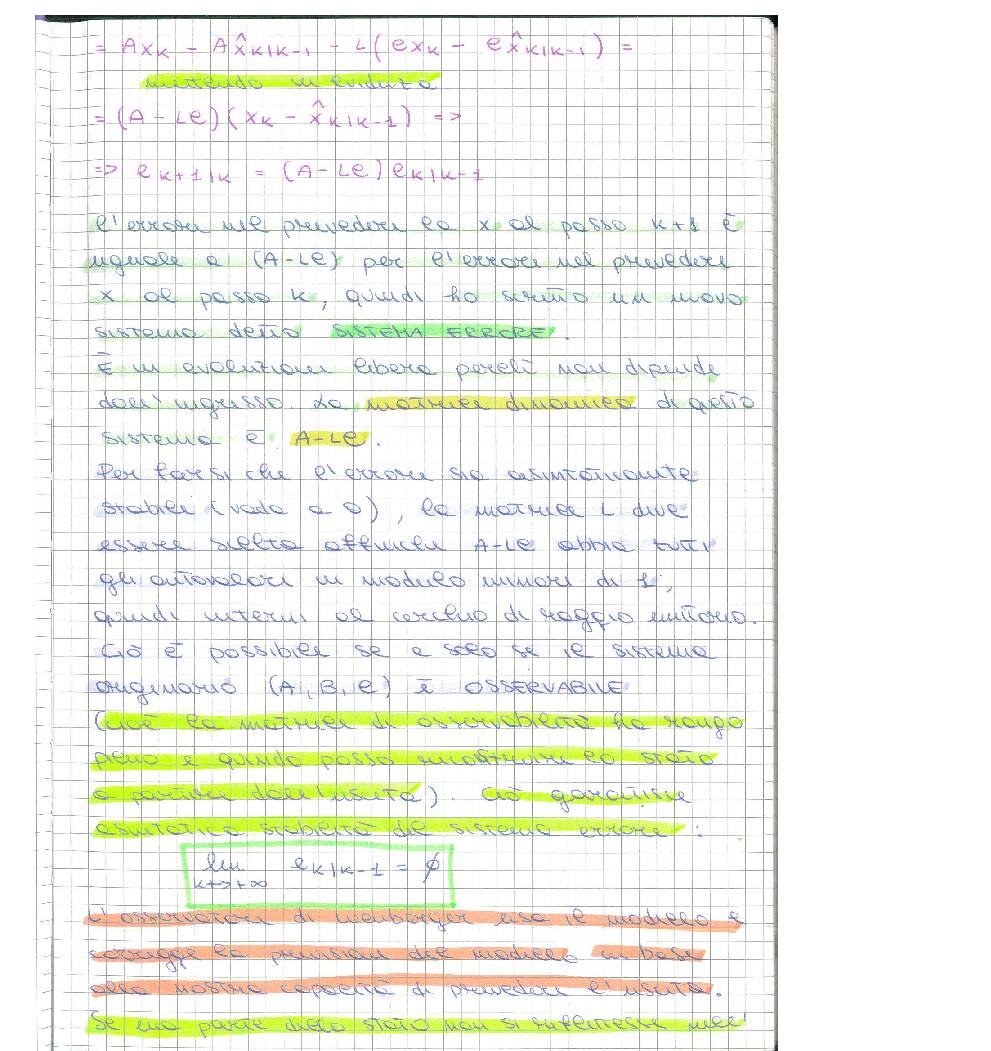 = Axk - Ax̂k|k-1 - L(exk - ex̂k|k-1) =
mettendo in evidenza
= (A - Le)(xk - x̂k|k-1) =>
=> ek+1|k = (A-Le) ek|k-1
l'errore nel prevedere la x al passo k+1 è
uguale a (A-Le) per l'errore nel prevedere
x al passo k, quindi ho scritto un nuovo
sistema detto SISTEMA ERRORE.
È in evoluzione libera perchè non dipende
dall'ingresso. La matrice dinamica di questo
sistema è A-Le.
Per far sì che l'errore sia asintoticamente
stabile (vada a 0), la matrice L deve
essere scelta affinchè A-Le abbia tutti
gli autovalori in modulo minori di 1,
quindi interni al cerchio di raggio unitario.
Ciò è possibile se e solo se il sistema
originario (A, B, e) è OSSERVABILE
(cioè la matrice di osservabilità ha rango
pieno e quindi posso ricostruire lo stato
a partire dall'uscita). Ciò garantisce
asintotica stabilità del sistema errore:
lim ek|k-1 = ∅
k->+∞
L'osservatore di Luenberger usa il modello e
corregge la previsione del modello in base
alla nostra capacità di prevedere l'uscita.
Se una parte dello stato non si riflettesse nell'